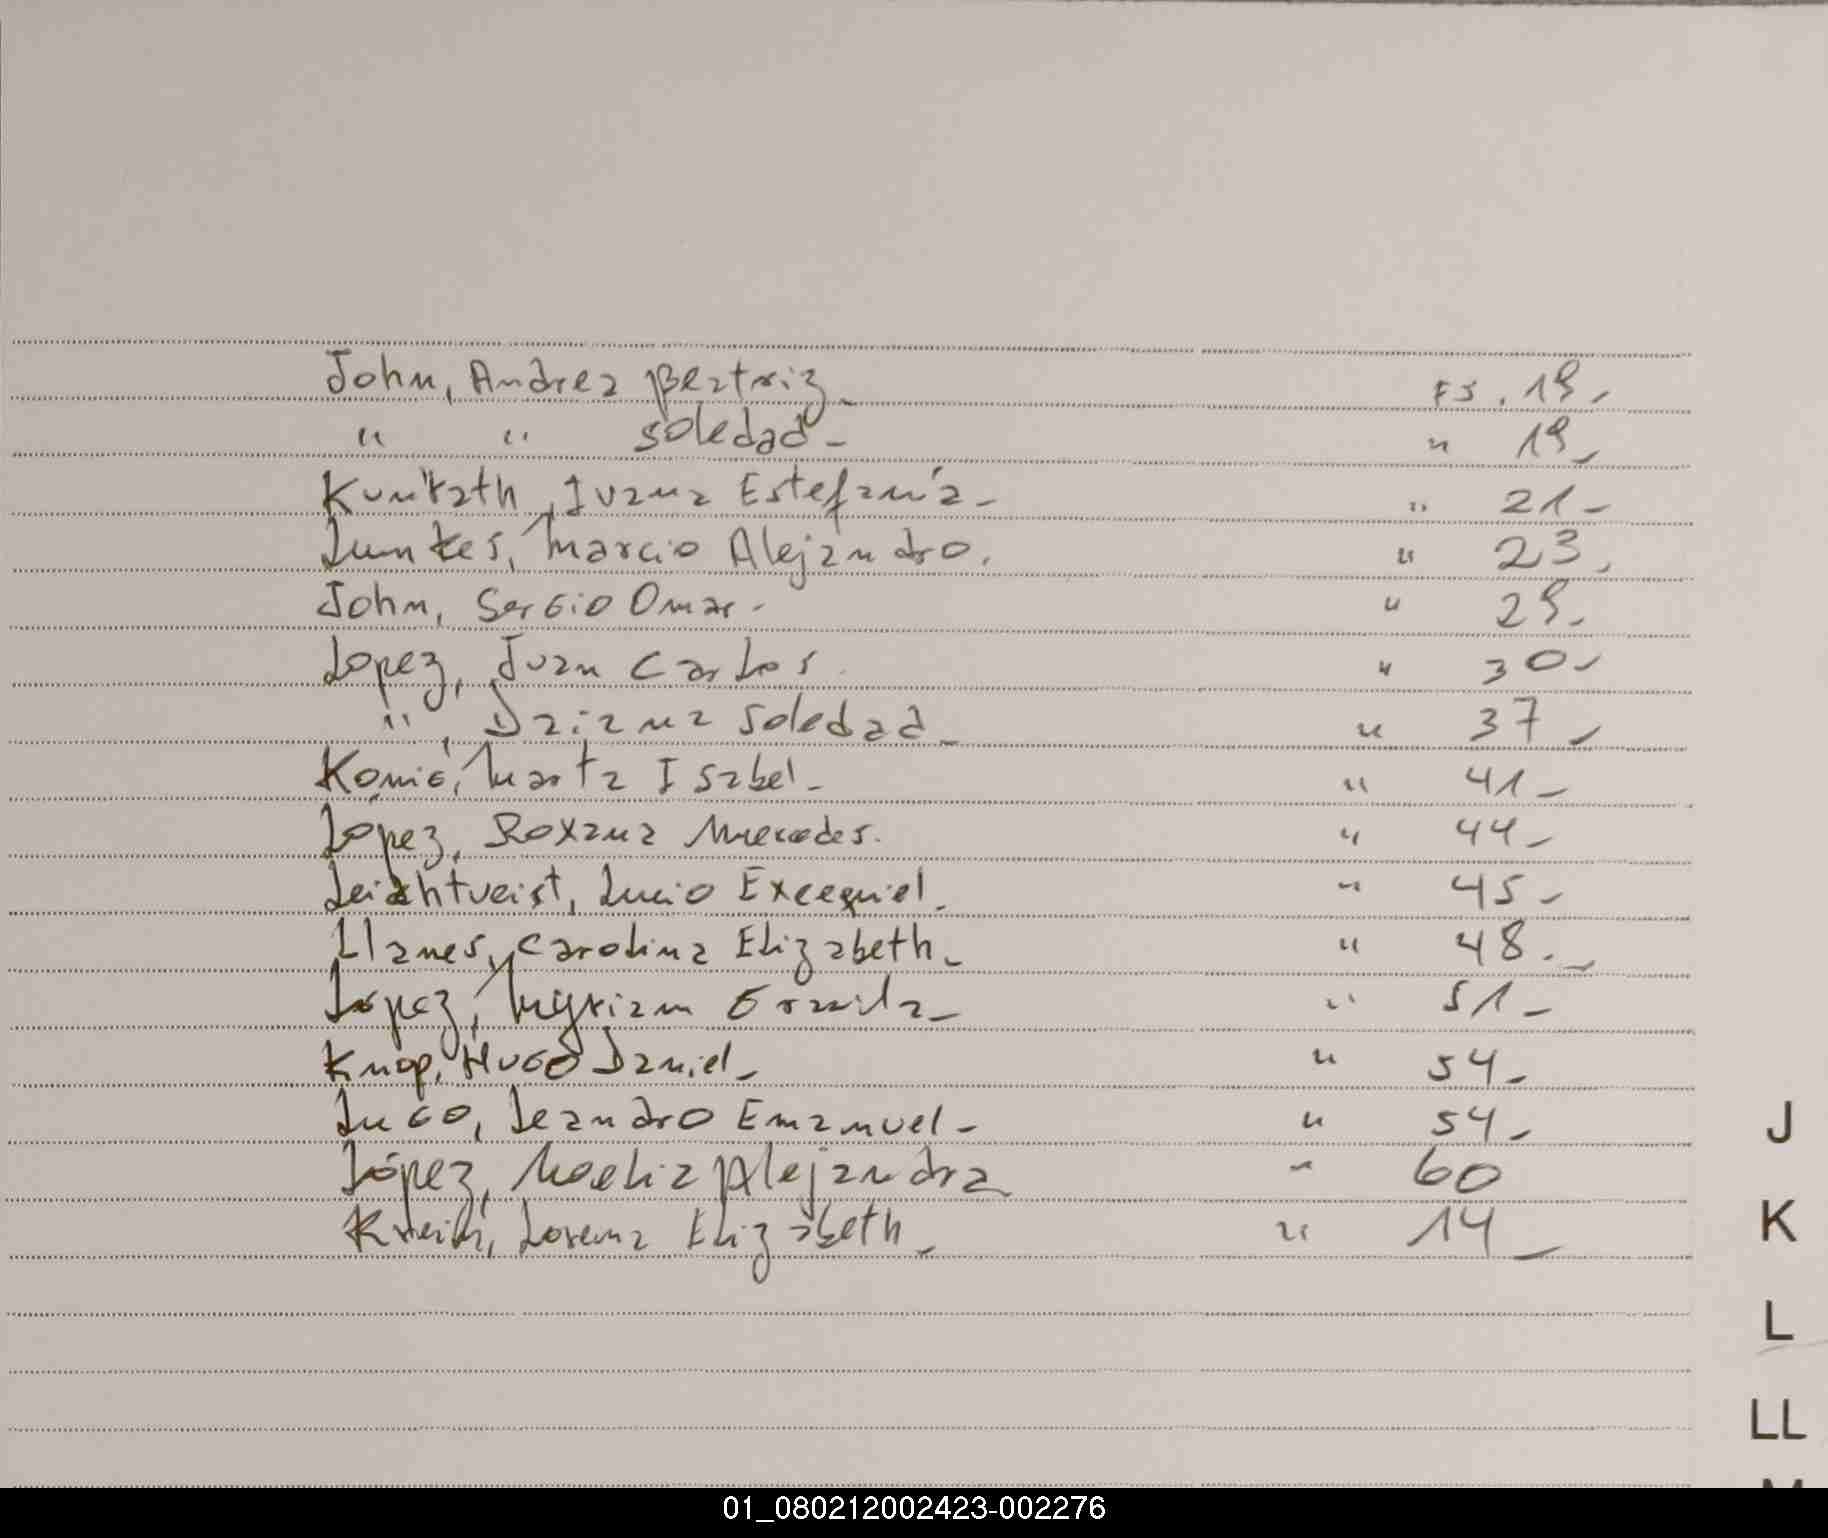 John, Andrea Beatriz_ FS. 19.-
" " Soledad_ " 19_
Kunkath, Ivana Estefanía_ " 21_
Luntes, Marcio Alejandro. " 23.
John, Sergio Omar- " 29.
Lopez, Juan Carlos. " 30-
" , Daiana Soledad_ " 37_
König, Marta Isabel_ " 41_
Lopez, Roxana Mercedes. " 44_
Leichtveist, Lucio Exeequiel. " 45_
Llanes, Carolina Elizabeth_ " 48._
López, Myriam Graciela_ " 51_
Knop, Hugo Daniel_ " 54_
Lugo, Leandro Emanuel_ " 54_
López, Noelia Alejandra " 60
Lorena Elizabeth_ " 14_
J
K
L
LL
01_080212002423-002276